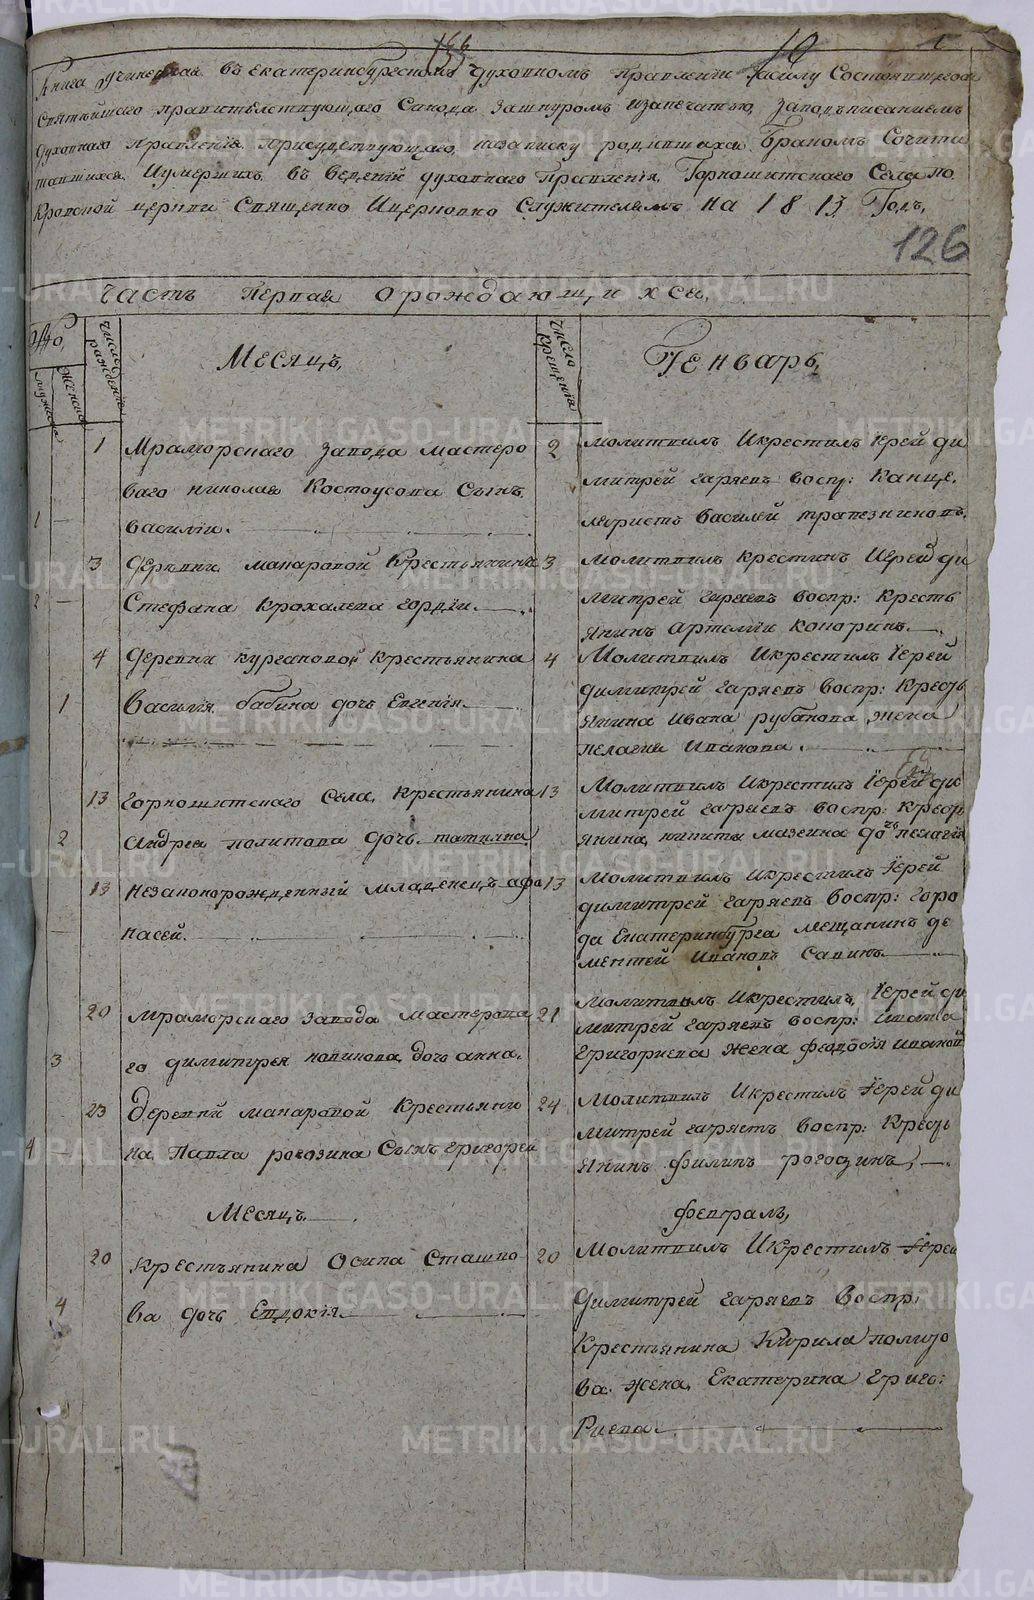 Книга учиненная въ екатеринбургскомъ духовномъ правлении
Святѣйшаго правительствующаго Синода за шнуромъ
духовнаго правления присудствующаго, на записку родившихся Бракомъ Сочита
вшихся Иумершихъ въ ведении духовнаго Правления Горнощитскаго Села По
кровской церкви Священно Ицерковно Служителямъ на 1813 Годъ,
126
Часть Первая о рождающихся.
Число рождения
Месяцъ,
Число крещения
Генварь,
мужеска
женска
1 Мраморскаго завода мастеро
ваго николая Костоусова Сынъ
1 василии.
2 молитвилъ Икрестилъ Iерей ди
митрей гаряевъ воспр: Канце,
ляристъ василей трапезниковъ
3 деревни макаровой Крестьянина
2 Стефана Крохалева гордии.
3 молитвилъ крестилъ Иерей ди
митрей гаряевъ воспр: кресть
янинъ артемии
4 деревни кургановой крестьянина
1 василия бабина дочь Евгения
4 Молитвилъ Икрестилъ Iерей
димитрей гаряевъ воспр: кресть
янина ивана рубанова жена
пелагия Иванова.
13 горнощитскаго Села, крестьянина
2 андрея политова дочь татияна
13 Молитвилъ Икрестилъ Iерей ди
митрей гаряевъ воспр: кресть
янина никиты мазеина дочь пелагия
13 незаконорожденный младенецъ афо
насей.
13 Молитвилъ Икрестилъ Iерей
димитрей гаряевъ воспр: горо
да Екатеринбурга мещанинъ де
ментей Ивановъ Савинъ
20 мраморскаго завода мастерова
3 го димитрея новикова дочь анна.
21 Молитвилъ Икрестилъ, Iерей ди
митрей гаряевъ воспр: Ивана
григориева жена феодосия ивановй
23 деревни макаровой Крестьяни
4 на Павла рогозина Сынъ григорей
24 Молитвилъ Икрестилъ Iерей ди
митрей гаряевъ воспр: кресть
янинъ филипъ рогозинъ,
Месяцъ
февраль,
20 Крестьянина Осипа Сташко
4 ва дочь Евдокия
20 Молитвилъ Икрестилъ Iерей
димитрей гаряевъ воспр:
Крестьянина Кирила
ва жена, Екатерина григо:
риева
METRIKI.GASO-URAL.RU